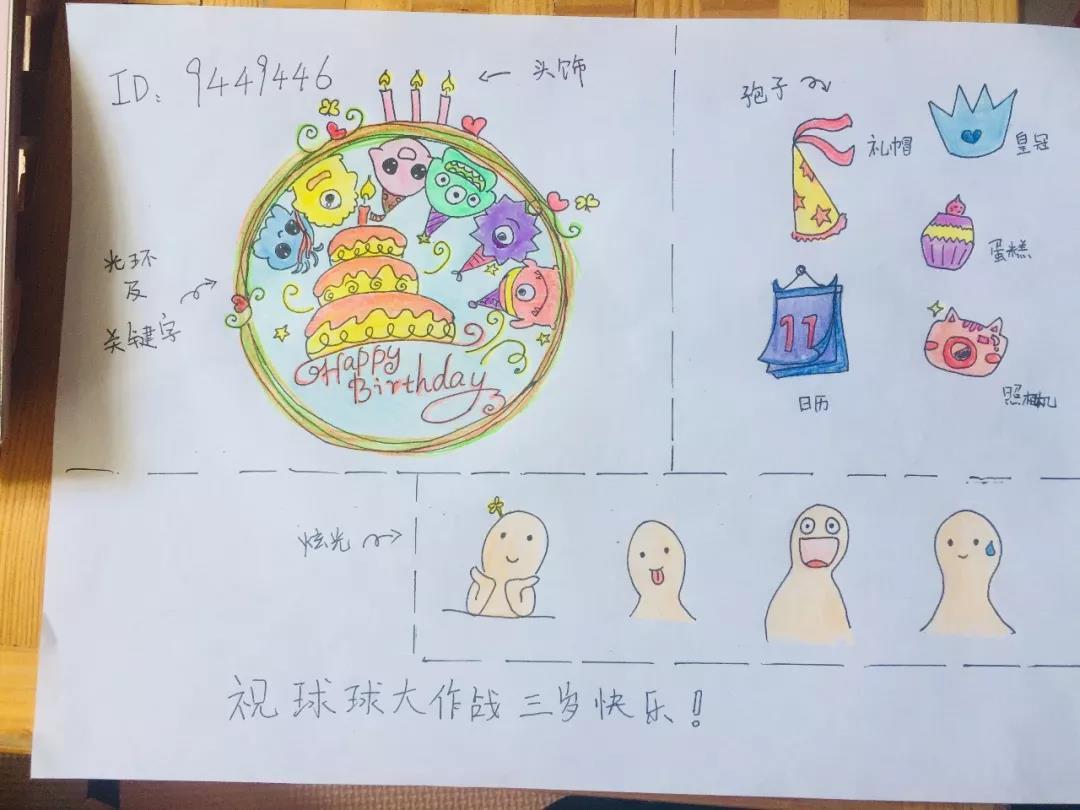 ID: 9449446
头饰
光环
及
关键字
Happy
Birthday
孢子
礼帽
皇冠
蛋糕
11
日历
照相机
炫光
祝球球大作战三岁快乐!